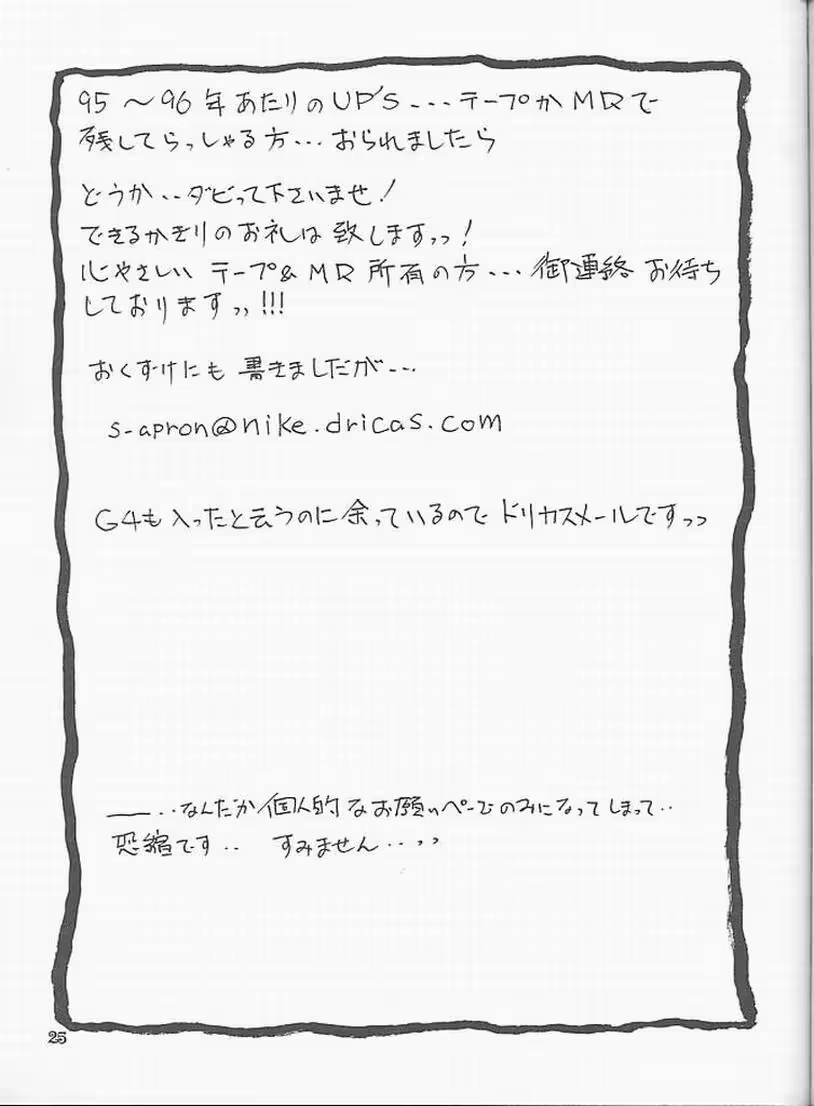 95～96年あたりのUP'S...テープかMDで
残してらっしゃる方...おられましたら
どうか..ダビって下さいませ!
できるかぎりのお礼は致しますっっ!
心やさしい テープ&MD所有の方...御連絡お待ち
しておりますっっ!!!
おくずけにも書きましだが...
s-apron@nike.dricas.com
G4も入ったと云うのに余っているので ドリカスメールですっっ
――..なんだか個人的なお願いページのみになってしまって..
恐縮です.. すみません..っっ
25